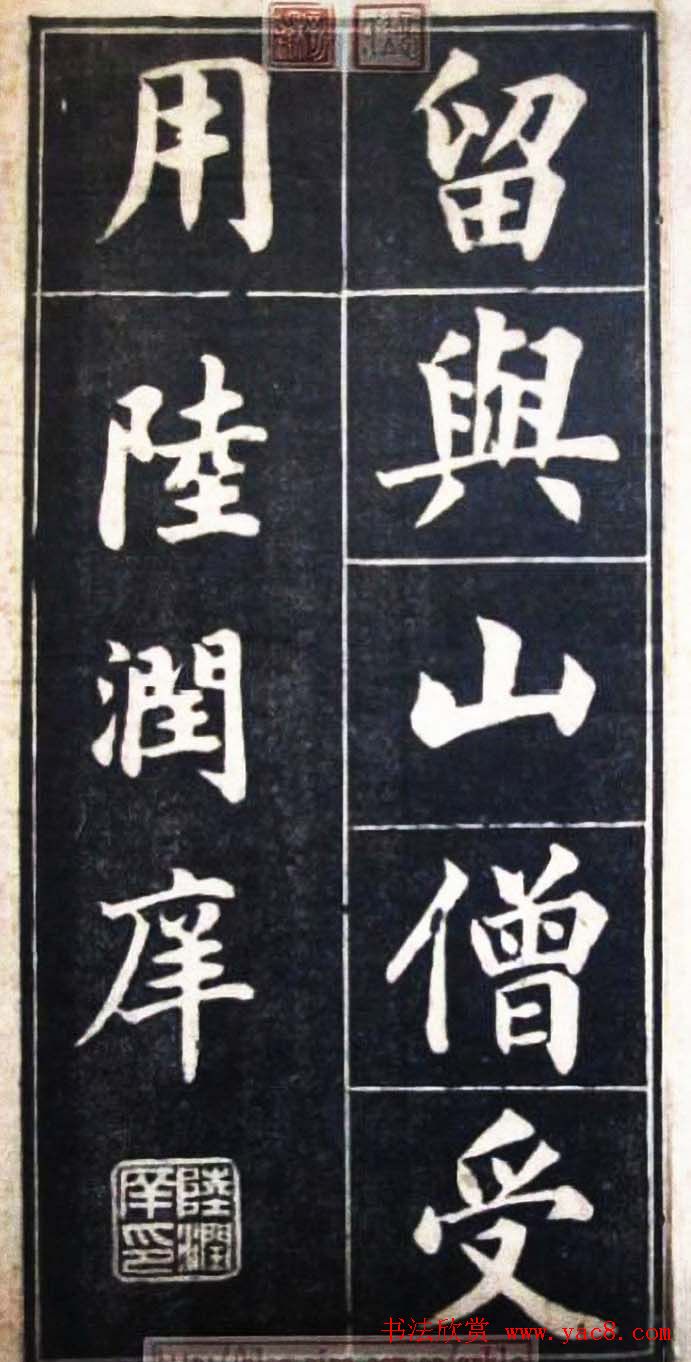 留與山僧受
用陸潤庠
陸潤庠印
书法欣赏 www.yac8.com